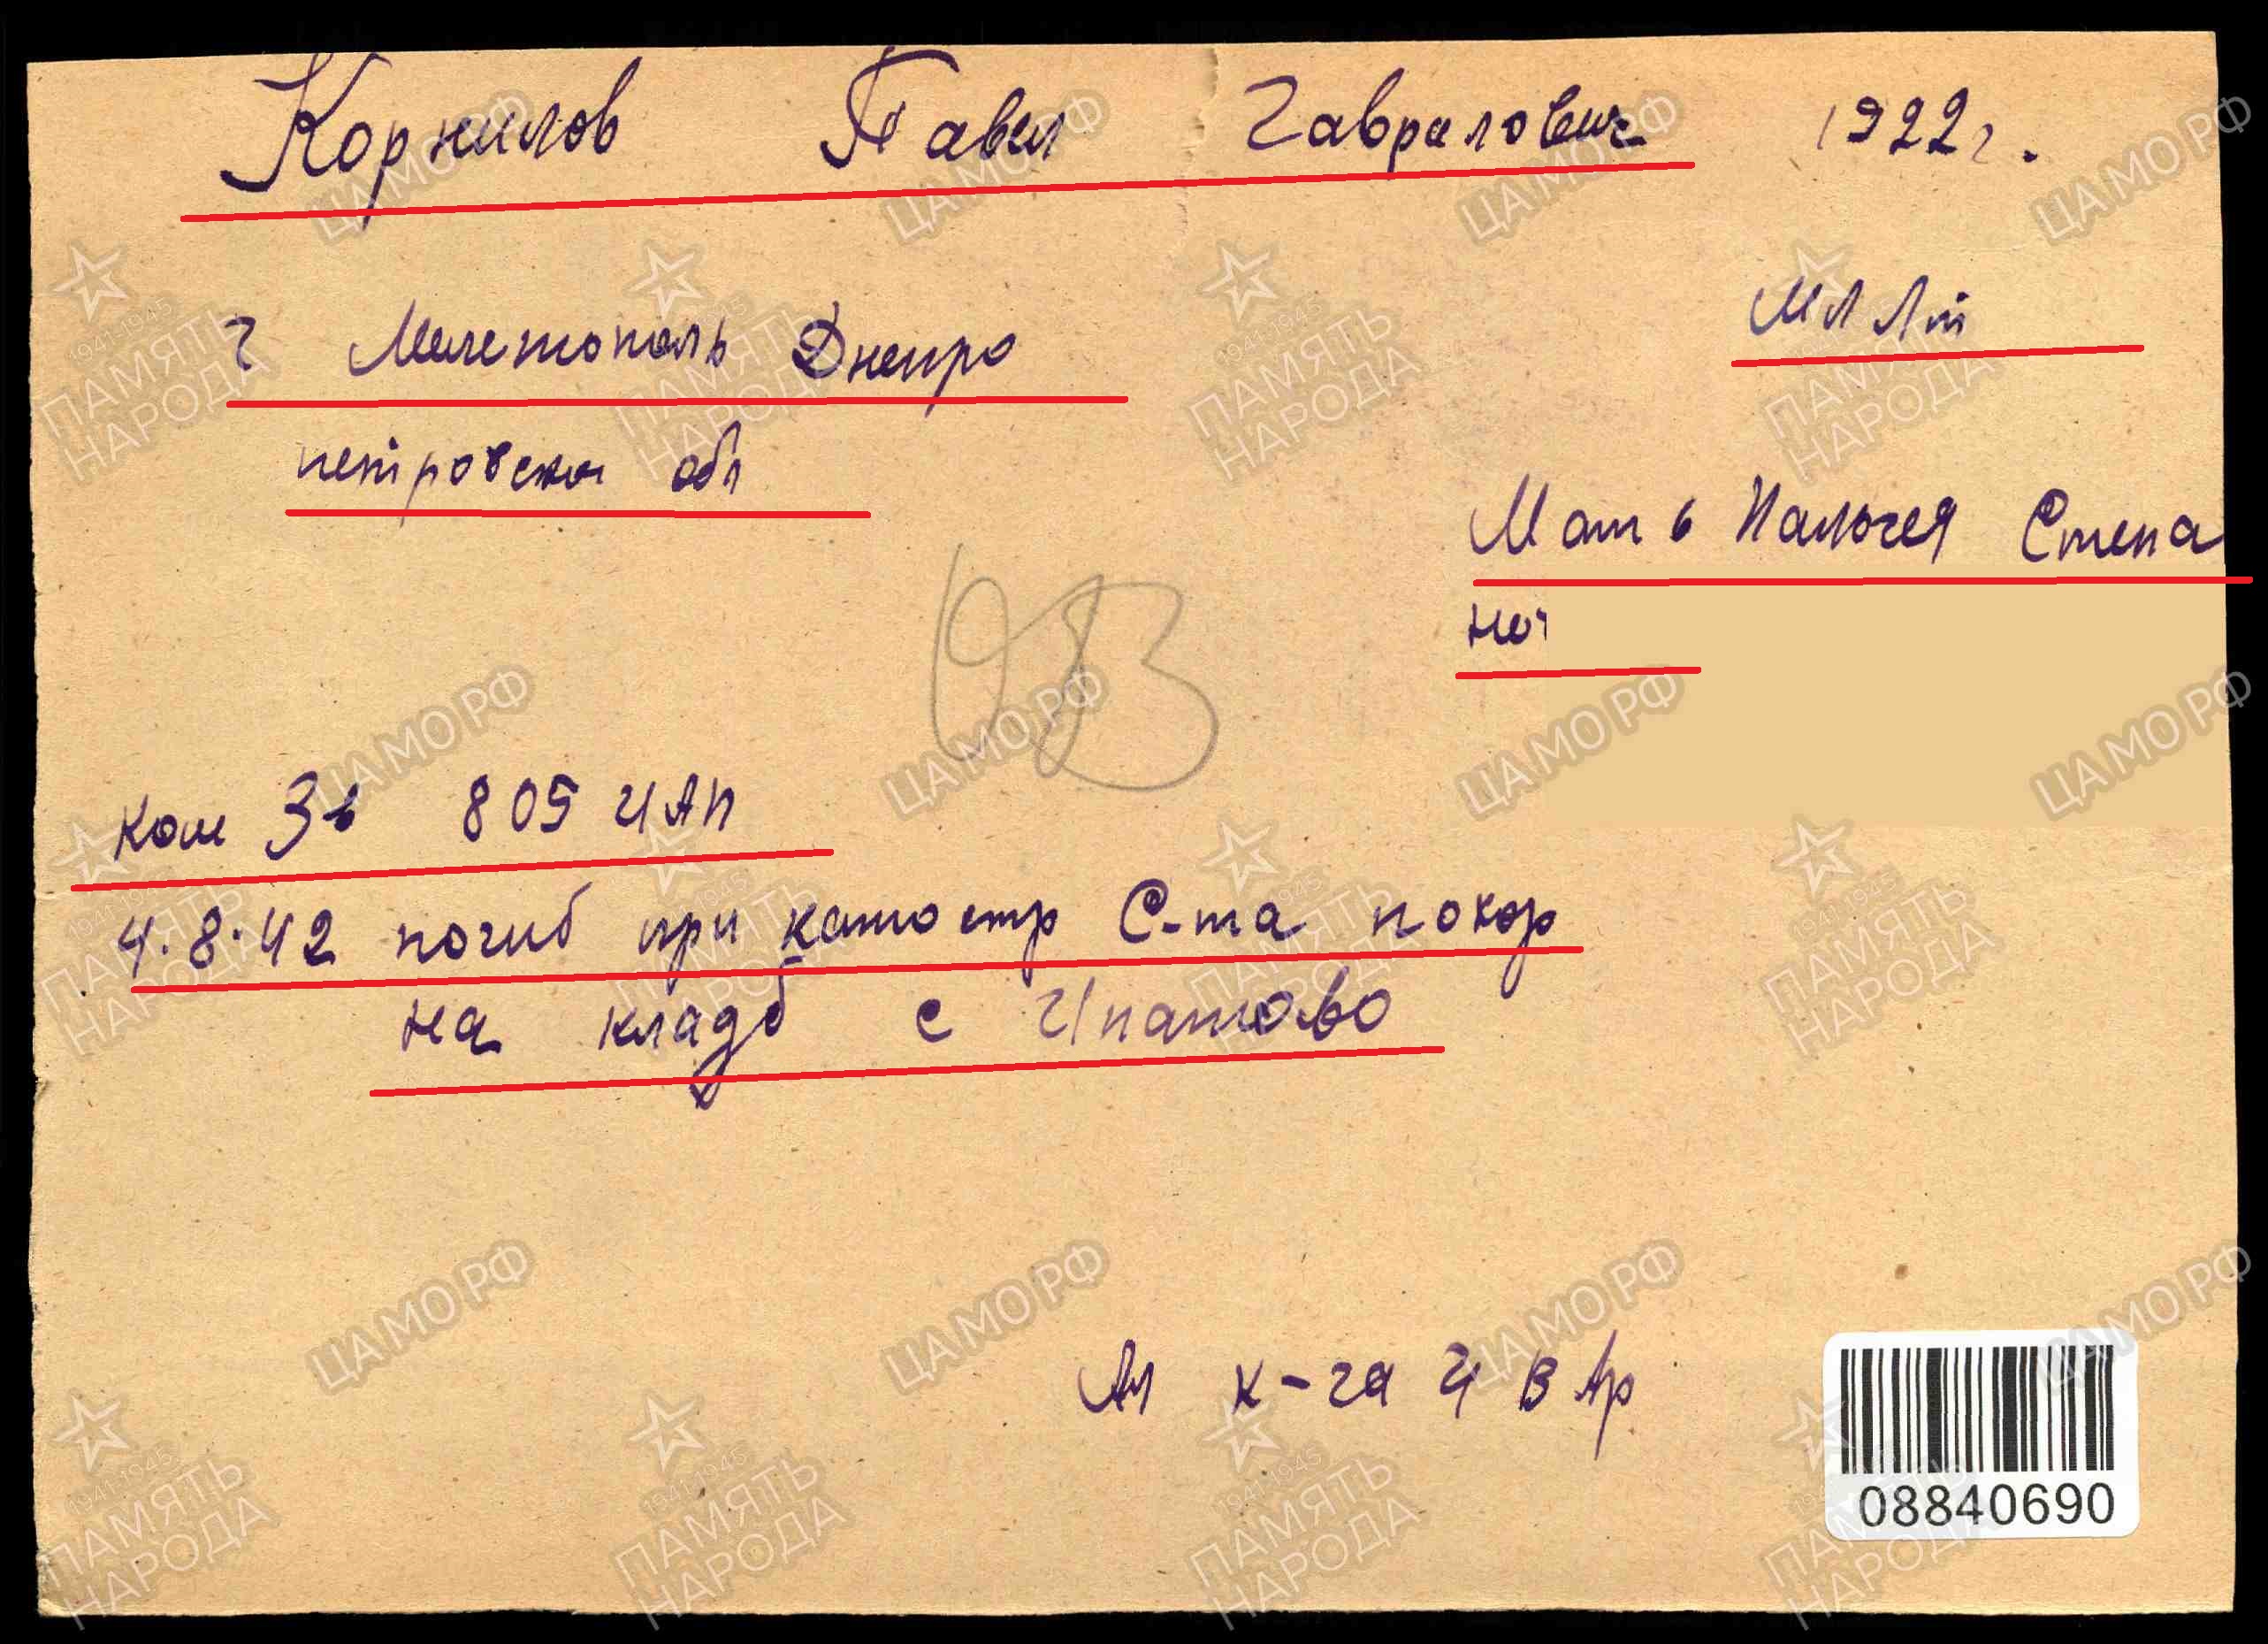 Корнилов Павел Гаврилович 1922г.
г Мелетополь Днепро
петровской обл
мл Лт
Мать Палогея Степа
но
Ком Зв 805 ИАП
4.8.42 погиб при катостр С-та покор
на кладб с Ипатово
Ал к-га 4 В Ар
08840690
ЦАМО РФ
1941-1945
ПАМЯТЬ
НАРОДА